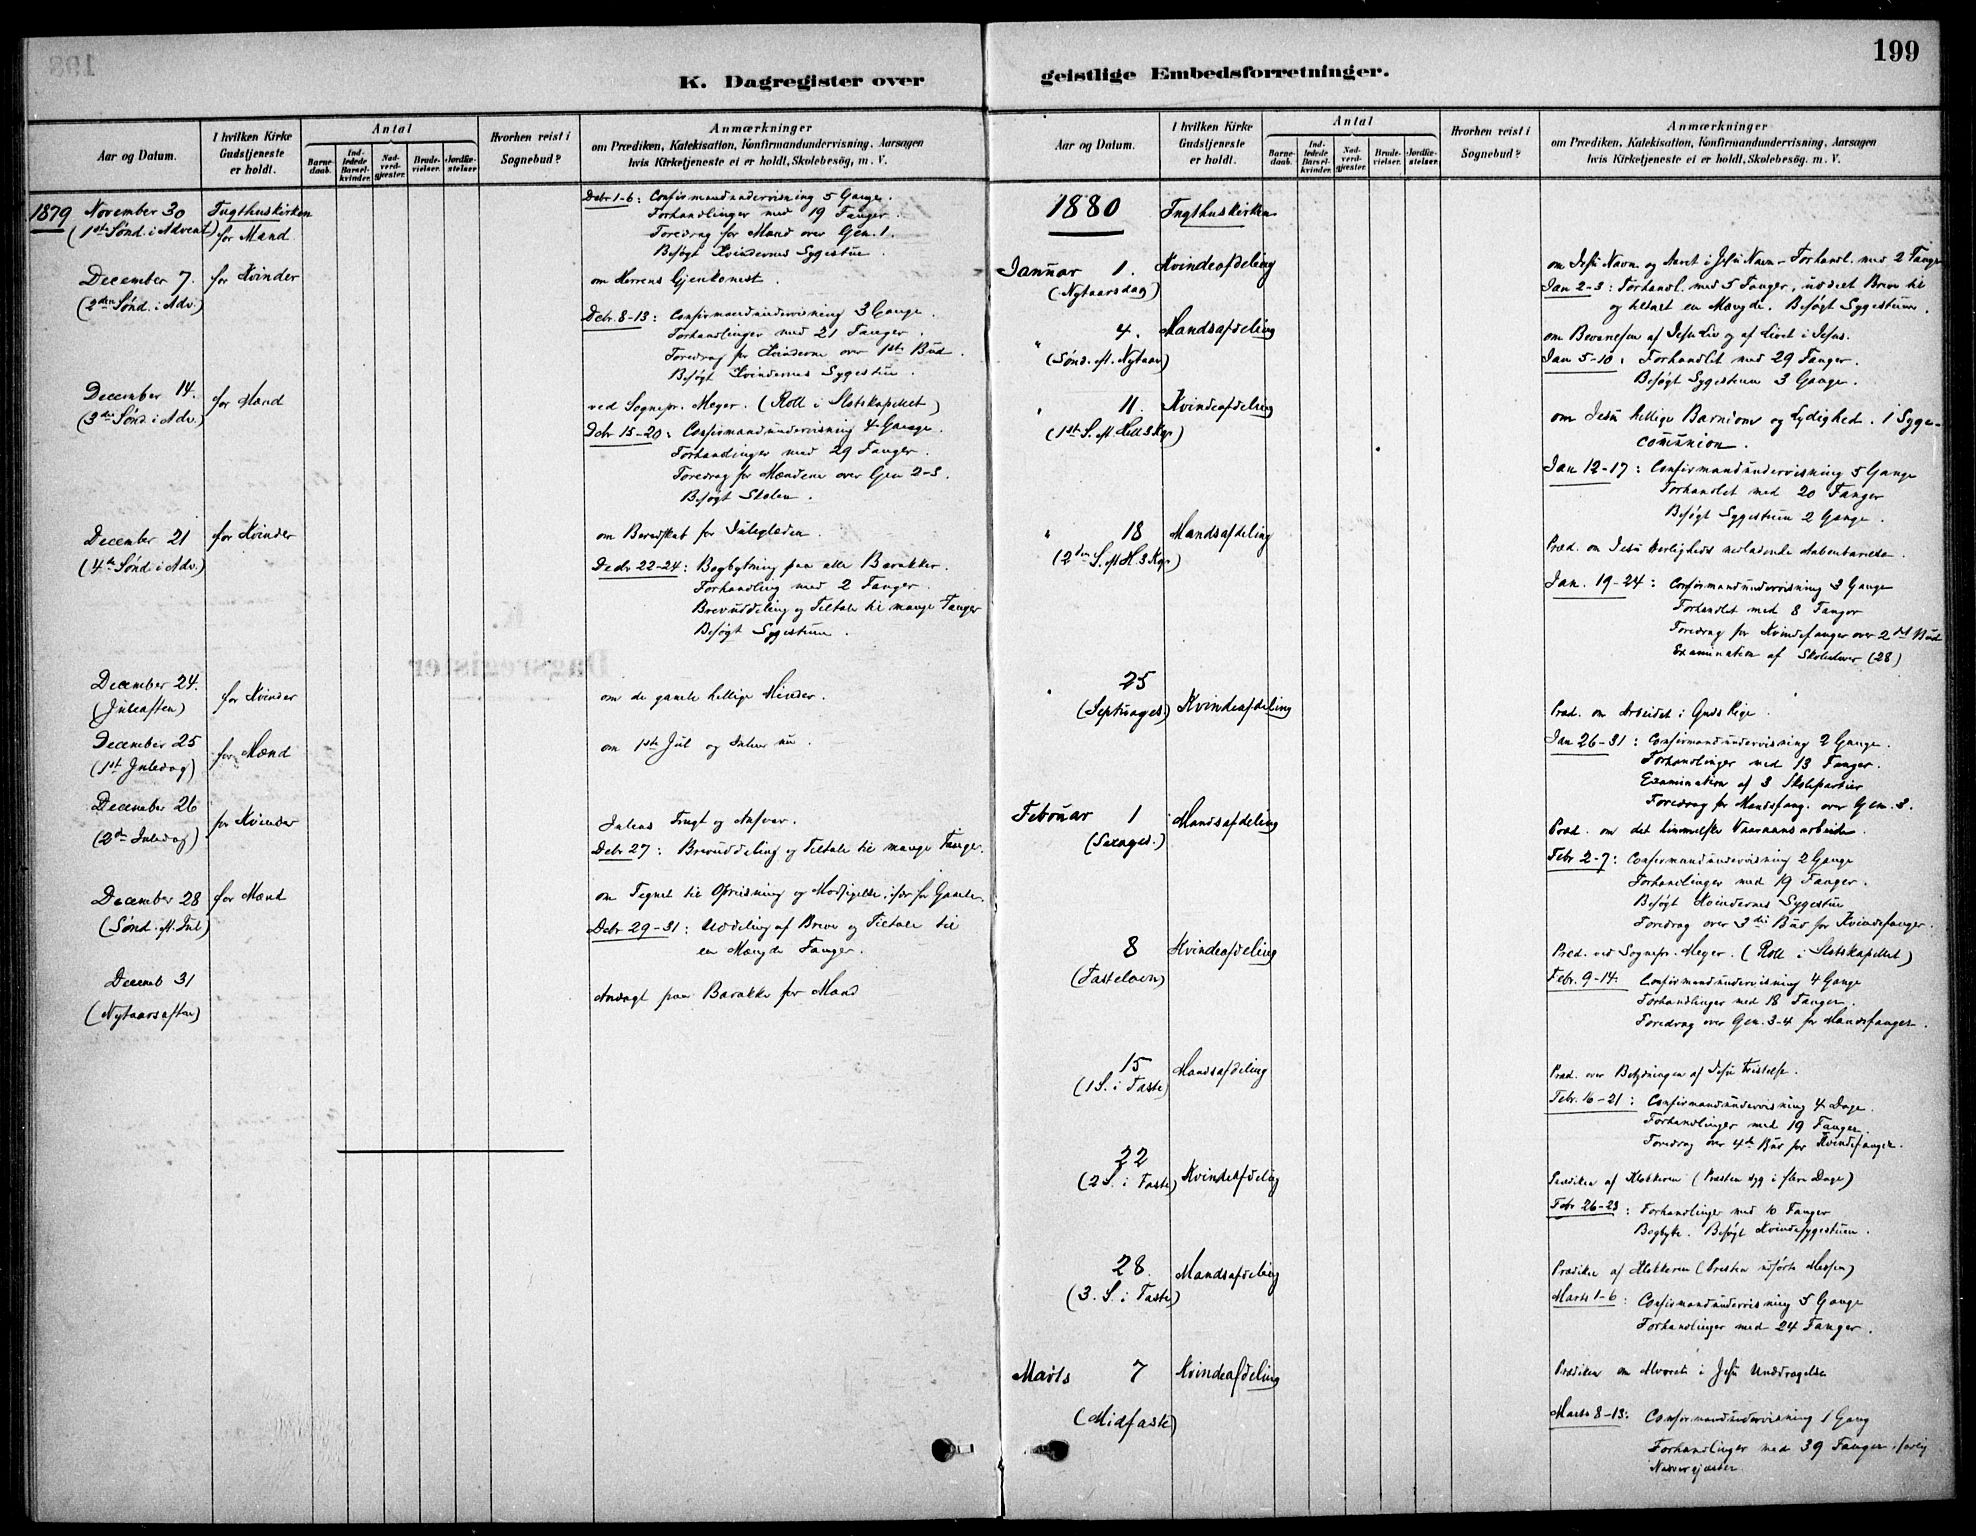 199
K. Dagregister over
Aar og Datum.
I hvilken Kirke Gudstjeneste er holdt.
Antal
Barnedaab.
Indledede Barselkvinder.
Nadverdgjester.
Brudevielser.
Jordfæstelser.
Hvorhen reist i Sognebud?
Anmærkninger
om Prædiken, Katekisation, Konfirmandundervisning, Aarsagen
hvis Kirketjeneste ei er holdt, Skolebesøg, m. V.
1879 November 30 Tugthuskirken
(1ste Sønd. i Advent) for Mænd
Decbr 1-6: Confirmandundervisning 5 Gange.
Forhandlinger med 19 Fanger.
Foredrag for Mænd over Gen. 1.
Besøgt Kvindernes Sygestue.
December 7. for Kvinder
(2den Sønd. i Adv.)
om Herrens Gjenkomst.
Debr. 8-13: Confirmandundervisning 3 Gange.
Forhandlinger med 21 Fanger.
Foredrag for Kvinderne over 1ste Bud.
Besøgt Kvindernes Sygestue.
December 14. for Mænd
(3die Sønd. i Adv.)
ved Sognepr. Meyer. (Roll i Slotskapellet)
Debr 15-20: Confirmandundervisning 4 Gange.
Forhandlinger med 29 Fanger.
Foredrag for Mændene over Gen 2-3.
Besøgt Skolen.
December 21 for Kvinder
(4de Sønd. i Adv.)
om Beredskab for Juleglæden.
Decbr 22-24: Bogbytning paa alle Barakker.
Forhandling med 2 Fanger.
Brevuddeling og Tiltale til mange Fanger
Besøgt Sygestuen.
December 24. for Kvinder
(Juleaften)
om de gamle hellige Minder.
December 25 for Mænd
(1ste Juledag)
om 1ste Jul og Julen nu.
December 26 for Kvinder
(2den Juledag)
Julens Frugt og Ansvar.
Debr 27: Brevuddeling og Tiltale til mange Fanger.
December 28 for Mænd
(Sønd. M. Jul)
om Tegnet til Opreisning og Modsigelse, især for Gamle.
Debr 29-31: Uddeling af Breve og Tiltale til
en Mængde Fanger.
Decemb 31
(Nytaarsaften)
Andagt paa Barakke for Mænd
geistlige Embedsforretninger.
Aar og Datum.
I hvilken Kirke Gudstjeneste er holdt.
Antal
Barnedaab.
Indledede Barselkvinder.
Nadverdgjester.
Brudevielser.
Jordfæstelser.
Hvorhen reist i Sognebud?
Anmærkninger
om Prædiken, Katekisation, Konfirmandundervisning, Aarsagen
hvis Kirketjeneste ei er holdt, Skolebesøg, m. V.
1880 Tugthuskirken
Januar 1. Kvindeafdeling
(Nytaarsdag)
om Jesu Navn og Aaret i Jesu Navn - Forhandl. med 2 Fanger
Jan 2-3: Forhandl. med 5 Fanger, uddelt Breve til
og hilset en Mængde. Besøgt Sygestuen.
" 4. Mandsafdeling
(Sønd. M. Nytaar)
om Bevarelsen af Jesu Liv og af Livet i Jesus.
Jan 5-10: Forhandlet med 29 Fanger.
Besøgt Sygestuen 3 Gange.
" 11. Kvindeafdeling
(1ste S. M Hell 3 Kgr)
om Jesu hellige Barndom og Lydighed. 1 Syge-
comunion.
Jan 12-17: Confirmandundervisning 5 Gange
Forhandlet med 20 Fanger
Besøgt Sygestuen 2 Gange.
" 18 Mandsafdeling
(2den S. M H. 3 Kgr)
Præd. om Jesu Herligheds nedladende Aabenbarelse.
Jan. 19-24: Confirmandundervisning 3 Gange
Forhandlet med 8 Fanger
Foredrag for Kvindefanger over 2det Bud
Examination af Skoleelever (28)
" 25 Kvindeafdeling
(Septuages.)
Præd. om Arbeidet i Guds Rige.
Jan 26-31: Confirmandundervisning 2 Gange.
Forhandlinger med 13 Fanger.
Examination af 3 Skolepartier
Foredrag for Mandsfang. over Gen. 3.
Februar 1 Mandsafdeling
(Sexages.)
Præd. om det himmelske Vaaraansarbeide.
Febr 2-7: Confirmandundervisning 2 Gange
Forhandlinger med 19 Fanger.
Besøgt Kvindernes Sygestue
Foredrag over 3die Bud for Kvindefanger.
8 Kvindeafdeling
(Fastelavn)
Præd. ved Sognepr. Meyer. (Roll i Slotskapellet)
Febr. 9-14. Confirmandundervisning 4 Gange
Forhandlinger med 18 Fanger.
Foredrag over Gen. 3-4 for Mandsfanger.
15 Mandsafdeling
(1 S. i Faste)
Præd. over Betydningen af Jesu Fristelse.
Febr. 16-21: Confirmandundervisning 4 Dage.
Forhandlinger med 19 Fanger.
Foredrag over 4de Bud for Kvindefanger.
22 Kvindeafdeling
(2 S. i Faste)
Prædiken af Klokkeren (Præsten syg i flere Dage)
Febr 26-28: Forhandlinger med 10 Fanger
Bogbytte. Besøgt Kvindesygestuen.
28. Mandsafdeling
(3. S. i Faste)
Prædiken af Klokkeren (Presten udførte Messen)
Marts 1-6: Confirmandundervisning 5 Gange
Forhandlinger med 24 Fanger.
Marts 7 Kvindeafdeling
(Midfaste)
Prædiken om Alvoret i Jesu Unddragelse
Marts 8-13: Confirmandundervisning 1 Gang
Forhandlinger med 39 Fanger